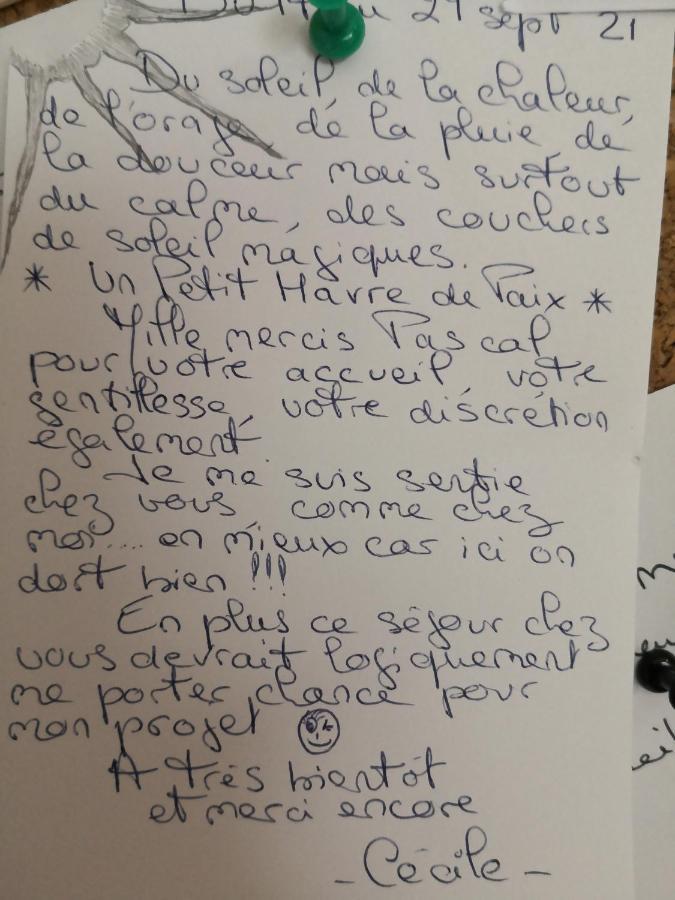 Du 14 au 21 sept 21
Du soleil, de la chaleur,
de l'orage, de la pluie, de
la douceur mais surtout
du calme, des couchers
de soleil magiques.
* Un Petit Havre de Paix *
Mille mercis Pascal
pour votre accueil, votre
gentillesse, votre discrétion
également
Je me suis sentie
chez vous comme chez
moi.... en mieux car ici on
dort bien !!!
En plus ce séjour chez
vous devrait logiquement
me porter chance pour
mon projet
A très bientôt
et merci encore
- Cécile -